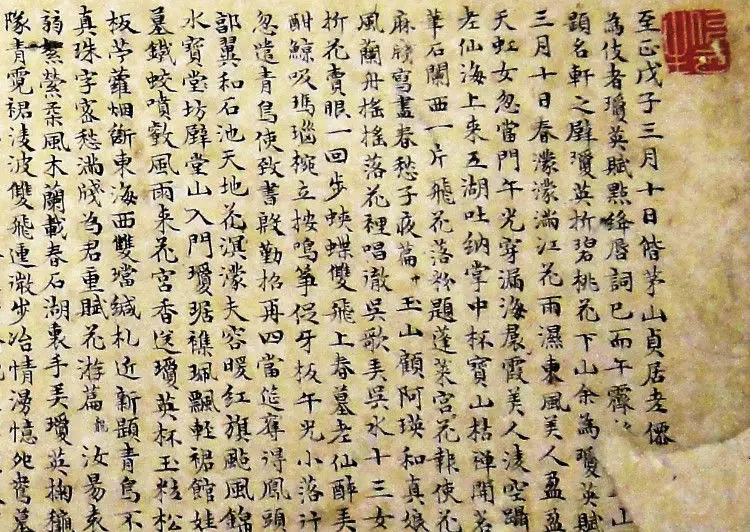 至正戊子三月十日偕茅山貞居老僊
為伎者瓊英賦點絳唇詞已而午霽山
題名軒之壁瓊英折碧桃花下山余為瓊英賦
三月十日春濛濛滿江花雨濕東風美人盈盈
天虹女忽當門午光穿漏海晨霞美人淩空躡
老仙海上来五湖吐納掌中杯寶山枯禪開茗
華石闌西一片飛花落粉題蓬萊宮花報使花
麻牋寫盡春愁子夜篇玉山顧阿瑛和真娘
風蘭舟搖搖落花裡唱徹吳歌美吳水十三女
折花賣眼一回步蛺蝶雙飛上春墓老仙醉美
酣鯨吸瑪瑙椀立按鳴箏促牙板午光小落行
忽遣青鳥使致書殷勤招再四當筵奪得鳳頭
郭翼和石池天地花溟濛夫容暖紅旗颭風錦
水寶堂坊壁堂山入門瓊琚襍珮飄輕裾館娃
墓鐵蛟噴風雨来花宮香送瓊英杯玉粒松
板苧蘿烟斷東海西雙璫緘札近新題青鳥不
真珠字密愁滿牋為君重賦花游篇汝易袁
弱絮縈柔風木蘭載春石湖裏手美瓊英掬
隊青霓裙淩波雙飛連微步冶情湧憶死鴦墓